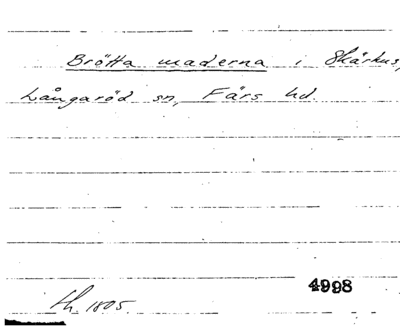 Brötta maderna i Skårhus,
Långaröd sn, Färs hd.
4998
lh. 1805.